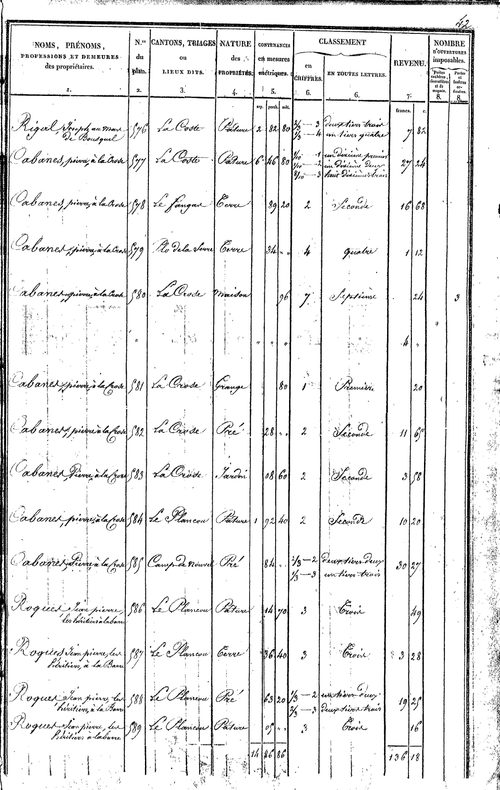 NOMS, PRÉNOMS,
PROFESSIONS ET DEMEURES
des propriétaires.
1.
N.os
du
plan.
2.
CANTONS, TRIAGES
ou
LIEUX DITS.
3.
NATURE
des
PROPRIÉTÉS.
4.
CONTENANCES
en mesures
métriques.
5.
CLASSEMENT
en
CHIFFRES.
6.
EN TOUTES LETTRES.
6.
REVENU.
7.
NOMBRE
D'OUVERTURES
imposables.
8.
8.
francs. c.
Rigal Joseph au mas 576 La Coste Pâture 2 82 80 2/3 — 3 deux tiers trois 7 82
de Bousquet 1/3 — 4 un tiers quatre
Cabanes, pierre, à la Crose 577 La Coste Pâture 6 46 80 1/10 — 1 un dixième premier 27 24
1/10 — 2 un dixième deux
8/10 — 3 huit dixièmes trois
Cabanes, pierre, à la Crose 578 Le fangas Terre 89 20 2 Seconde 16 68
Cabanes, pierre, à la Crose 579 de la Serre Terre 34 " 4 quatre 1 12
Cabanes, pierre, à la Crose 580 La Crose Maison 96 7 Septième 24 3
" " 4 "
Cabanes, pierre, à la Crose 581 La Crose Grange 80 1 Première 20
Cabanes, pierre, à la Crose 582 La Crose Pré 28 " 2 Seconde 11 65
Cabanes, Pierre, à la Crose 583 La Crose Jardin 08 60 2 Seconde 3 58
Cabanes, pierre, à la Crose 584 Le Plancou Pâture 1 92 40 2 Seconde 10 20
Cabanes, Pierre, à la Crose 585 Camp de Pré 84 " 2/3 — 2 deux tiers deux 30 27
1/3 — 3 un tiers trois
Roques Jean pierre, 586 Le Plancou Pâture 14 70 3 Trois 49
les héritiers à la bare
Roques Jean pierre, les 587 Le Plancou Terre 36 40 3 Trois 3 28
héritiers, à la Bare
Roques Jean pierre, les 588 Le Plancou Pré 63 20 1/3 — 2 un tiers deux 19 25
héritiers, à la Bare 2/3 — 3 deux tiers trois
Roques Jean pierre, les 589 Le Plancou Pâture 05 " 3 Trois 16
héritiers, à la bare
14 86 86 136 18